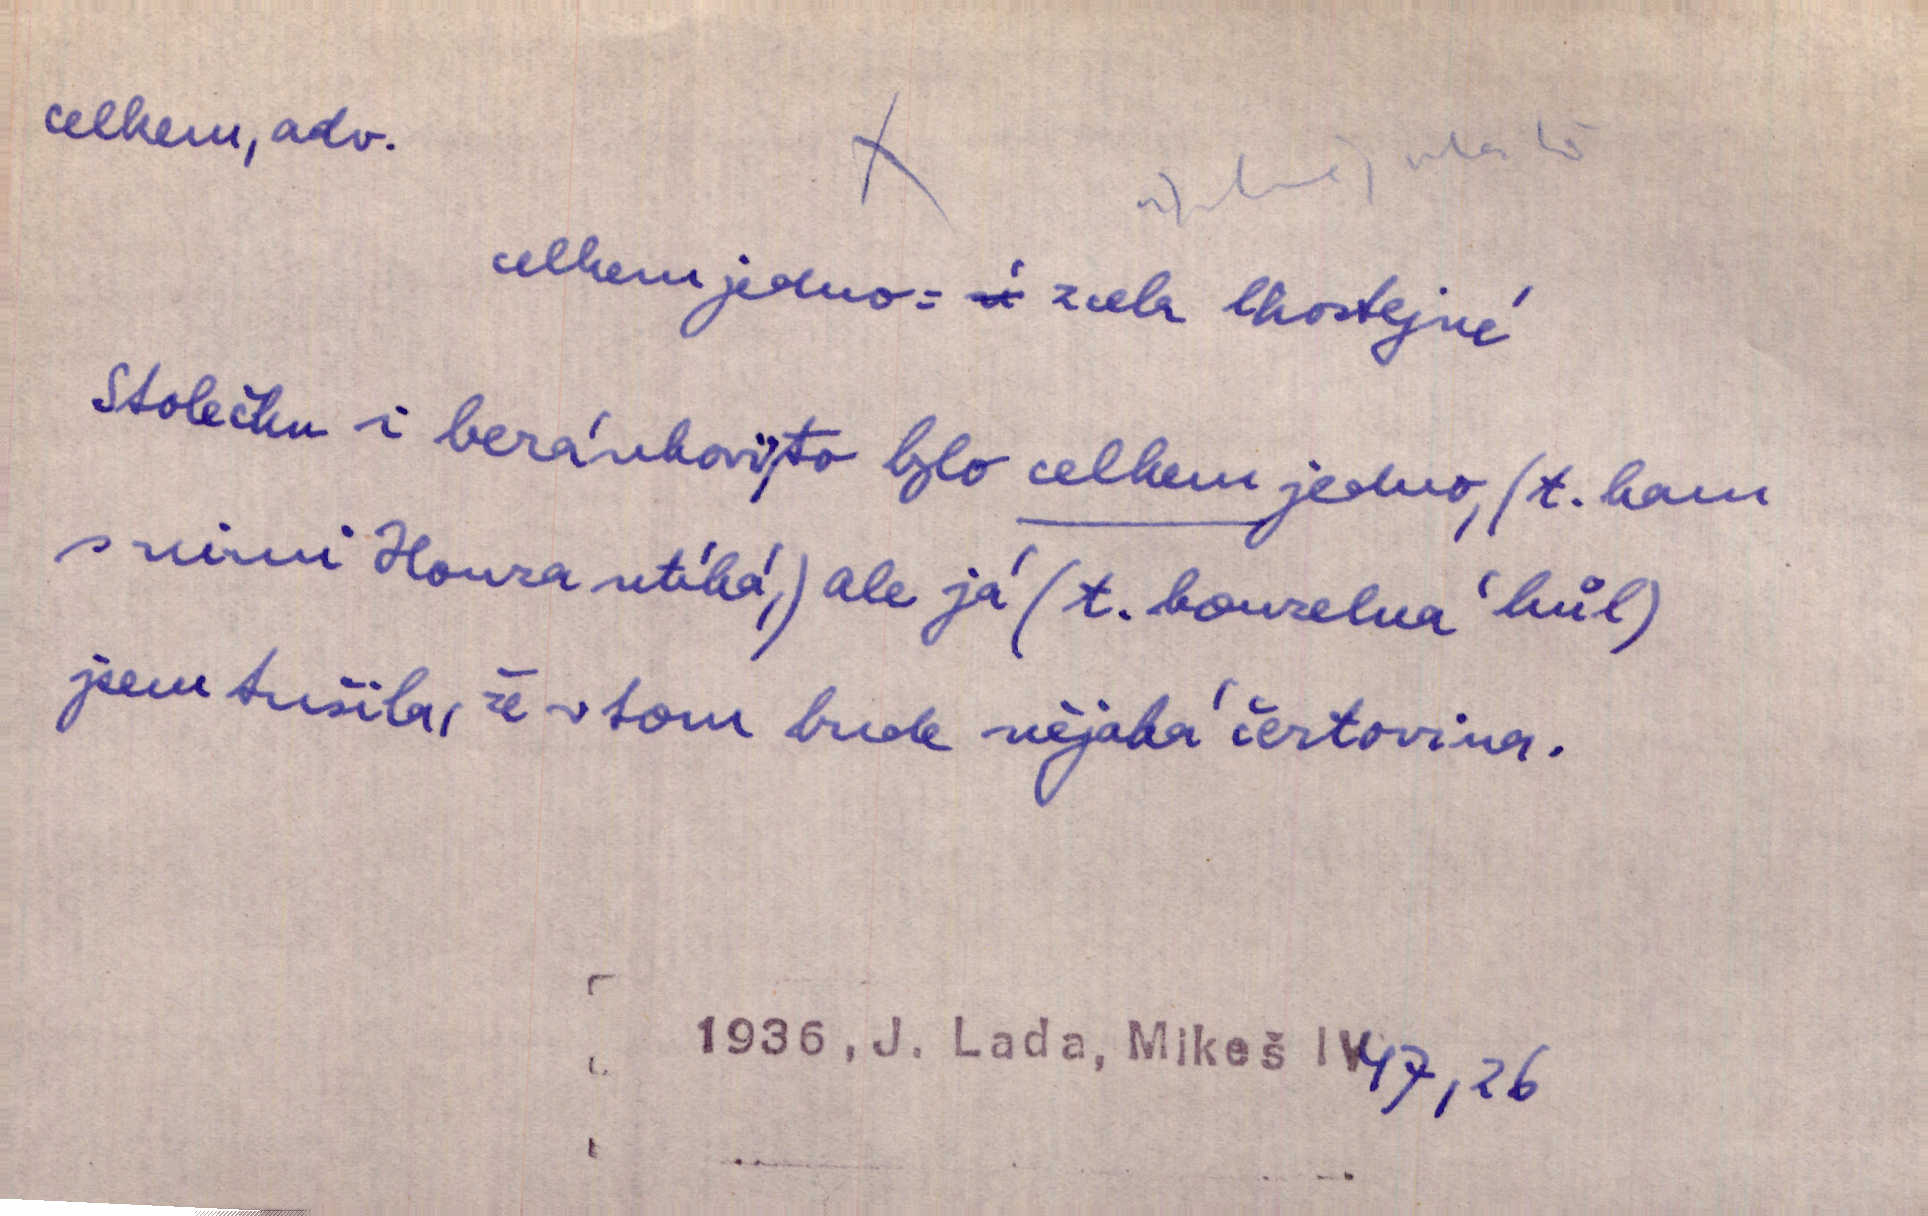 celkem, adv.
celkem jedno = zcela lhostejné
Stolečku i beránkovi to bylo celkem jedno, (t. kam
s nimi Honza utíká,) ale já (t. kouzelná hůl)
jsem tušila, že v tom bude nějaká čertovina.
1936, J. Lada, Mikeš IV 47, 26